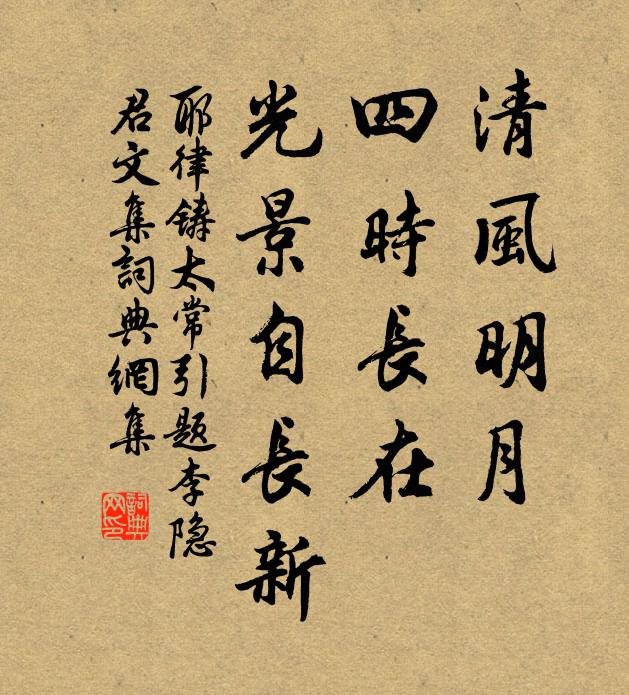 清風明月
四時長在
光景自長新
耶律鑄太常引题李隐
君文集詞典網集
詞典网印